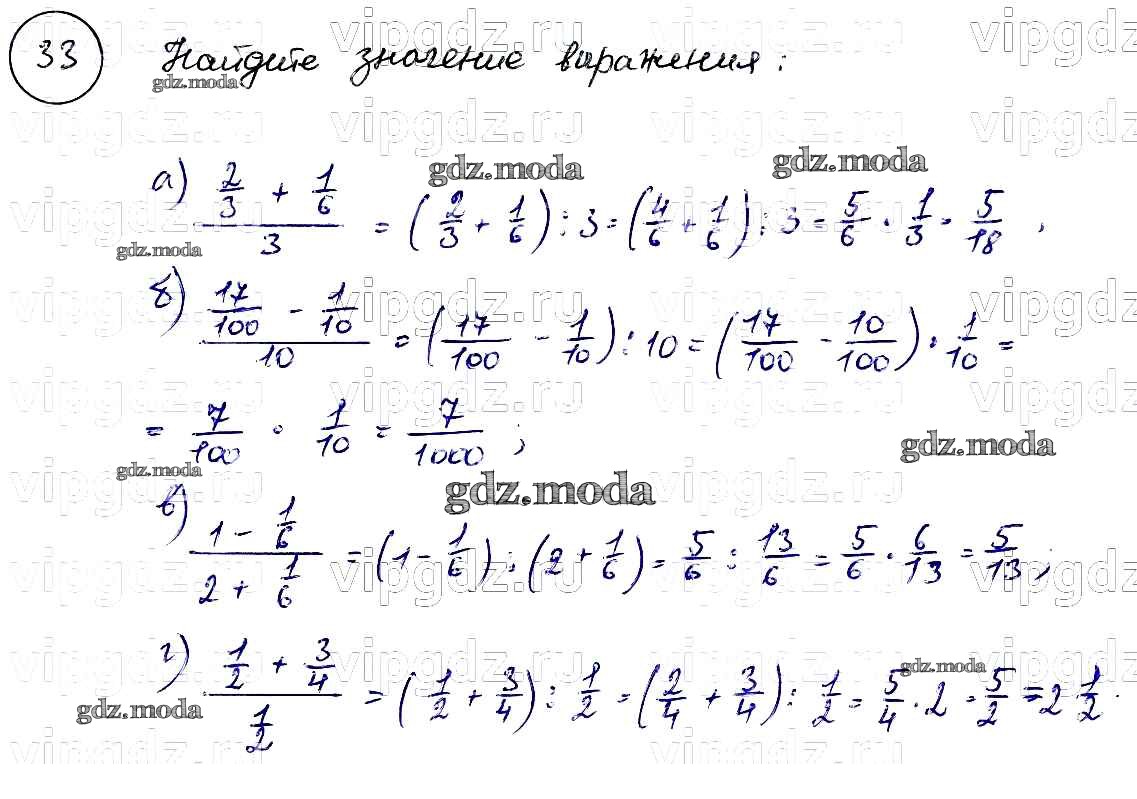 33 Найдите значение выражения:
а) (2/3 + 1/6)/3 = (2/3 + 1/6) : 3 = (4/6 + 1/6) : 3 = 5/6 · 1/3 = 5/18 ,
б) (17/100 - 1/10)/10 = (17/100 - 1/10) : 10 = (17/100 - 10/100) · 1/10 =
= 7/100 · 1/10 = 7/1000 ;
в) (1 - 1/6)/(2 + 1/6) = (1 - 1/6) : (2 + 1/6) = 5/6 : 13/6 = 5/6 · 6/13 = 5/13 ;
г) (1/2 + 3/4)/(1/2) = (1/2 + 3/4) : 1/2 = (2/4 + 3/4) : 1/2 = 5/4 · 2 = 5/2 = 2 1/2 .
gdz.moda
vipgdz.ru